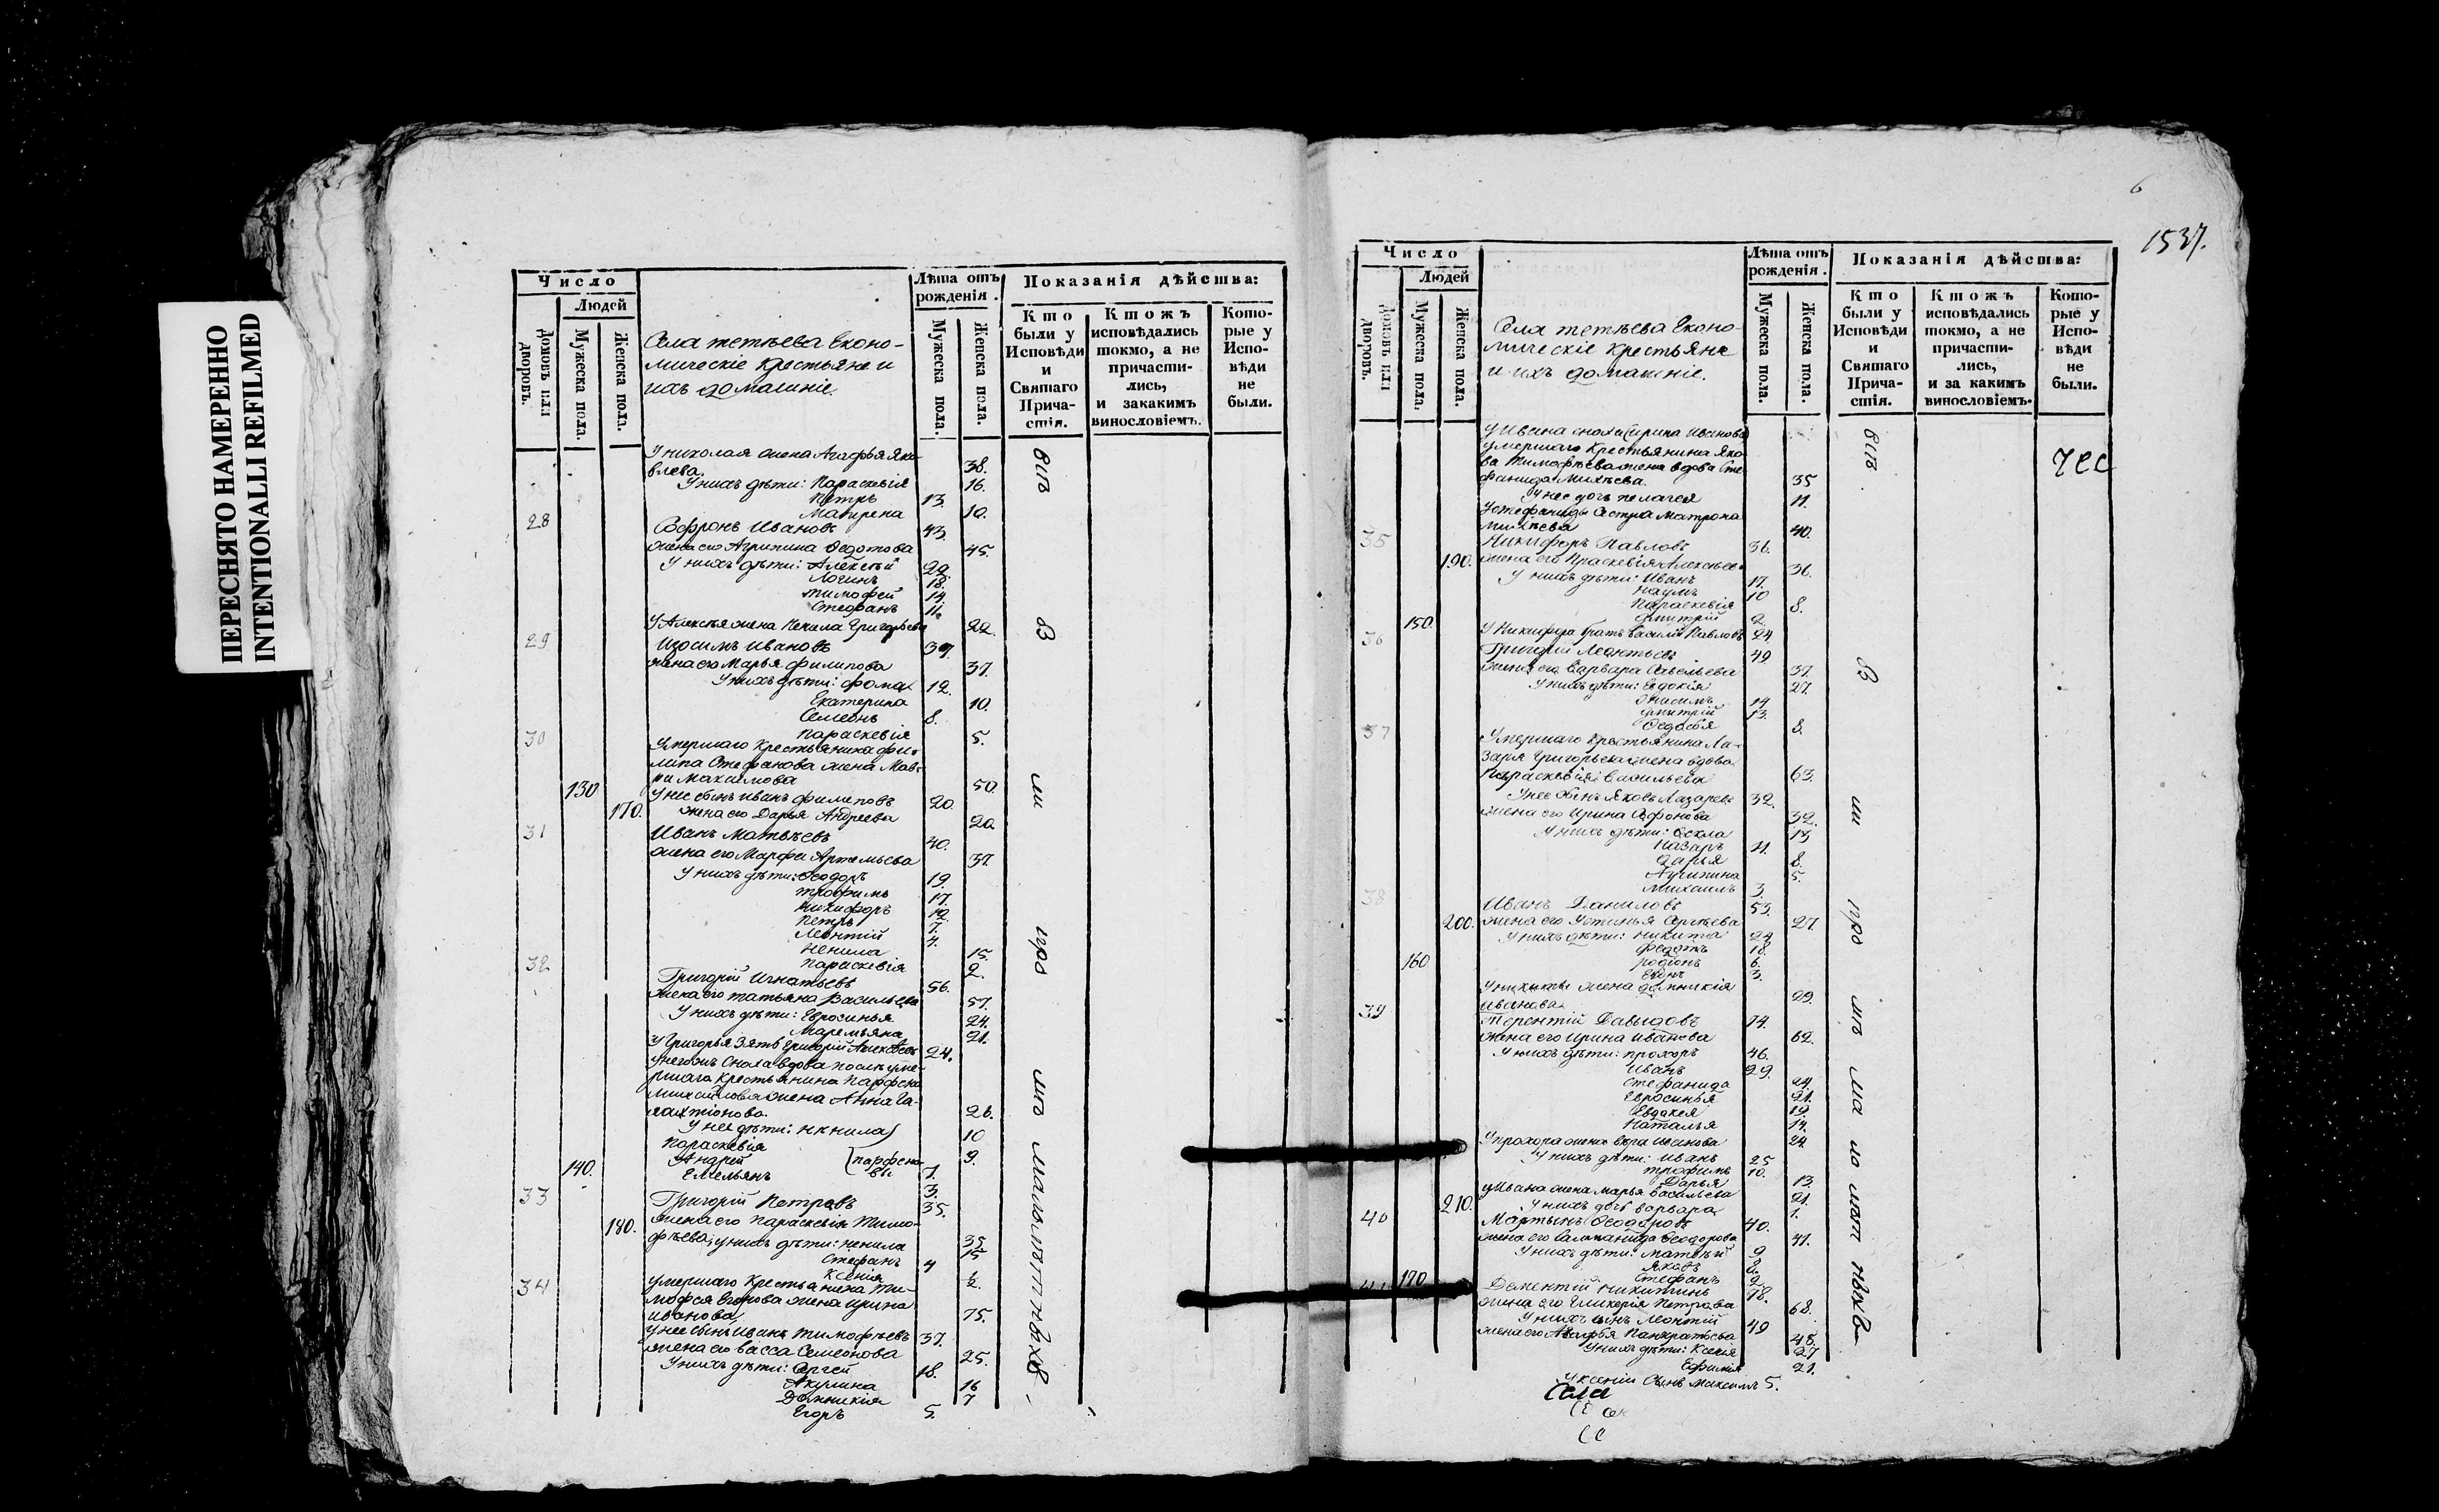 ПЕРЕСНЯТО НАМЕРЕННО
INTENTIONALLI REFILMED
Число
Людей
Домовъ или дворовъ.
Мужеска пола.
Женска пола.
Села тетѣева Еконо-
мическіе крестьяне и
ихъ домашніе.
Лѣта отъ рожденія.
Мужеска пола.
Женска пола.
Показанія дѣйства:
Кто были у Исповѣди и Святаго Причастія.
Ктожъ исповѣдались токмо, а не причастились, и закакимъ винословіемъ.
Которые у Исповѣди не были.
У николая жена Агафья Яко-
влева. 38.
У нихъ дѣти: Параскевія 16.
Петръ 13.
Матрена 10.
28 Софронъ Ивановъ 43.
жена его Агрипина Федотова 45.
У нихъ дѣти: Алексѣй 22.
Логинъ 18.
тимофей 14.
Стефанъ 11.
У Алексѣя жена Ненила Григорьева 22.
29 Изосимъ Ивановъ 37.
жена его Марья филипова 37.
У нихъ дѣти: фома 12.
Екатерина 10.
Семеонъ 8.
Параскевія 5.
30 Умершаго крестьянина фи-
липа Стефанова жена Мав-
ра Максимова 50.
130 У нее сынъ иванъ филиповъ 20.
170. жена его Дарья Андреева 20.
31 Иванъ Матвѣевъ 40.
жена его Марфа Артемьева 37.
У нихъ дѣти: Феодоръ 19.
трофимъ 17.
никифоръ 12.
Петръ 7.
Леонтій 4.
ненила 15.
Параскевія 2.
32 Григорій Игнатьевъ 56.
жена его татьяна Васильева 57.
У нихъ дѣти: Евросинья 24.
Маремьяна 21.
У Григорья зять Григорій Алексѣевъ 24.
У негожъ сноха вдова послѣ уме-
ршаго крестьянина Парфена
Михайлова жена Анна Га-
лактіонова. 26.
У нее дѣти: ненила 10
Параскевія 9.
Андрей парфено-
вы 7.
140. Емельянъ 3.
33 Григорій Петровъ 35.
180. жена его Параскевія Тимо-
фѣева, у нихъ дѣти: ненила 35 15
Стефанъ 4
Ксенія ½.
34 умершаго крестьянина Ти-
мофея Егорова жена ирина
иванова 75.
У нее сынъ Иванъ тимофѣевъ 37.
жена его васса Семеонова 25.
У нихъ дѣти: Сергей 18.
Акулина 16
Домникія 7
Егоръ 5.
6
1537.
Число
Людей
Домовъ или дворовъ.
Мужеска пола.
Женска пола.
Села тетѣева Еконо-
мическіе крестьяне
и ихъ домашніе.
Лѣта отъ рожденія.
Мужеска пола.
Женска пола.
Показанія дѣйства:
Кто были у Исповѣди и Святаго Причастія.
Ктожъ исповѣдались токмо, а не причастились, и за какимъ винословіемъ.
Которые у Исповѣди не были.
У Ивана сноха ирина Иванова
умершаго крестьянина Яко-
ва Тимофѣева жена вдова Сте-
фанида Михѣева. 35
У нее дочь пелагея 11.
У стефаниды сестра Матрона
Михѣева 40.
35 Никифоръ Павловъ 36.
190. жена его Праскевія Алексѣева 36.
У нихъ дѣти: Иванъ 17.
Наумъ 10
Параскевія 8.
Дмитрій 2.
150. У Никифора братъ василій Павловъ 24
36 Григорій Леонтьевъ 49.
жена его Варвара Савельева 37.
У нихъ дѣти: Евдокія 27.
Онисимъ 14
Дмитрій 13.
Федосья 8.
37 Умершаго крестьянина Ла-
заря Григорьева жена вдова
Параскевія Васильева 63.
У нее сынъ Яковъ Лазаревъ 32.
жена его Ирина Софонова 32.
У нихъ дѣти: Фекла 15
Назаръ 11.
Дарья 8.
Агрипина 5.
Михаилъ 3.
38 Иванъ Даниловъ 53.
200. жена его Устинья Сергѣева 27.
У нихъ дѣти: никита 24
федотъ 18.
160 родіонъ 6.
3.
У никиты жена домникія
иванова 22.
39 Терентій Давыдовъ 74.
жена его Ирина Иванова 62.
У нихъ дѣти: прохоръ 46.
Иванъ 29.
Стефанида 24.
Евросинья 21.
Евдокея 19.
Наталья 14.
У прохора жена вера иванова 24
У нихъ дѣти: Иванъ 25
трофимъ 10.
Дарья 13.
у Ивана жена марья васильева 21.
210. У нихъ дочь варвара 1.
40 Мартынъ Феодоровъ 40.
жена его Феодорова 41.
У нихъ дѣти: Матвѣй 9
Яковъ
Стефанъ 2
41 170 Дементій никитинъ 78.
жена его Гликерія Петрова 68.
У нихъ сынъ Леонтій 49
жена его Агафья Панкратьева 48.
У нихъ дѣти: Ксенія 27
Ефимія 21.
у ксеніи сынъ Максимъ 5.
Села